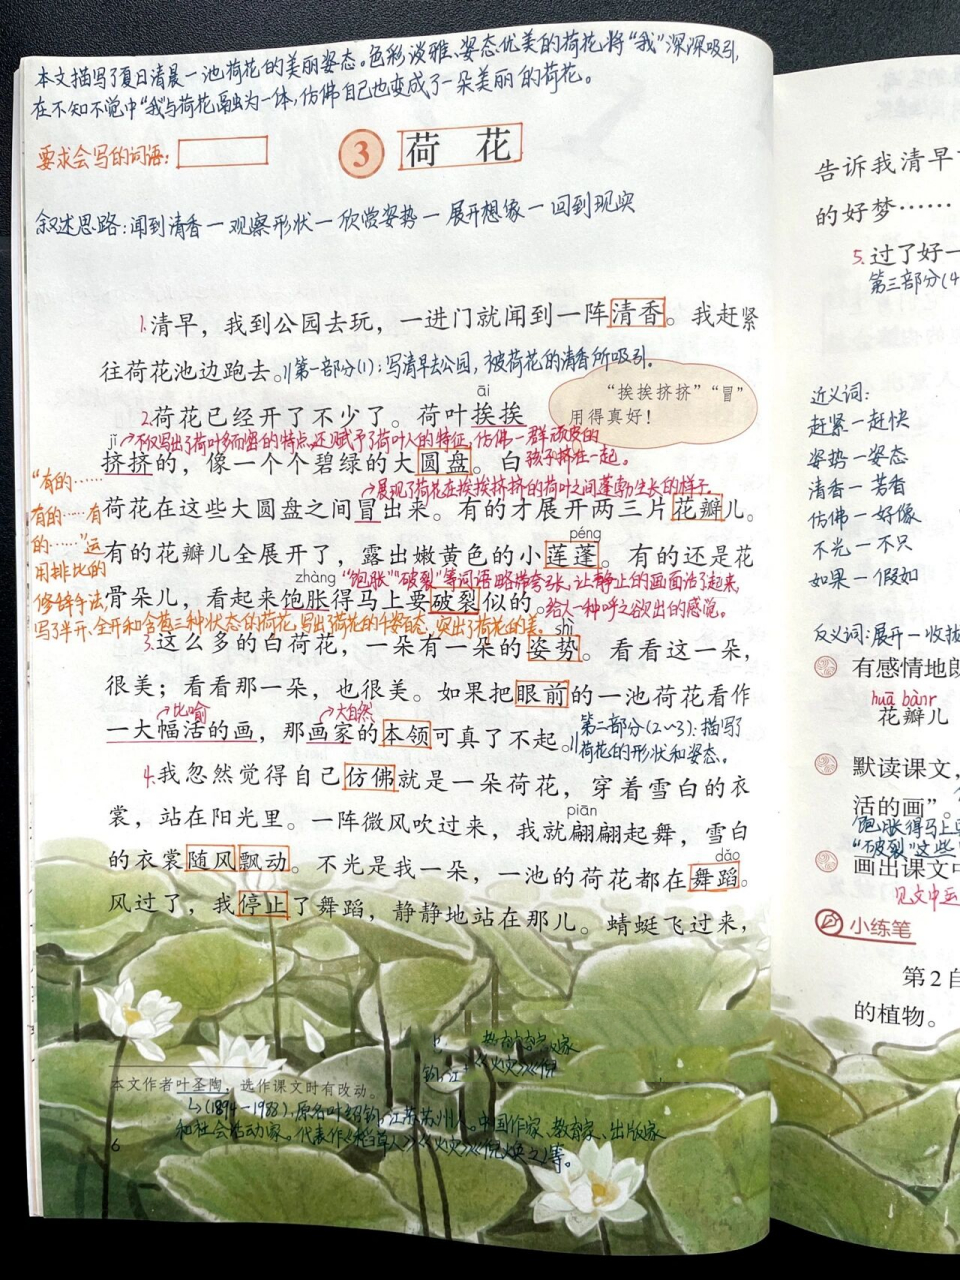 本文描写了夏日清晨一池荷花的美丽姿态。色彩淡雅、姿态优美的荷花,将“我”深深吸引,
在不知不觉中“我”与荷花融为一体,仿佛自己也变成了一朵美丽的荷花。
要求会写的词语:
3 荷花
叙述思路:闻到清香一观察形状一欣赏姿势一展开想像一回到现实
1.清早，我到公园去玩，一进门就闻到一阵清香。我赶紧
往荷花池边跑去。//第一部分(1):写清早去公园,被荷花的清香所吸引。
“挨挨挤挤”“冒”
用得真好！
āi
2.荷花已经开了不少了。荷叶挨挨
不仅写出了荷叶多而密的特点,还赋予了荷叶人的特征,仿佛一群顽皮的
孩子挤在一起。
jǐ
挤挤的，像一个个碧绿的大圆盘。白
展现了荷花在挨挨挤挤的荷叶之间蓬勃生长的样子。
荷花在这些大圆盘之间冒出来。有的才展开两三片花瓣儿。
péng
有的花瓣儿全展开了，露出嫩黄色的小莲蓬。有的还是花
zhàng
“饱胀”“破裂”等词语略带夸张,让静止的画面活了起来,
给人一种呼之欲出的感觉。
骨朵儿，看起来饱胀得马上要破裂似的。
“有的……
有的……有
的……”运
用排比的
修辞手法,
写了半开、全开和含苞三种状态的荷花,写出了荷花的千姿百态,突出了荷花的美。
shì
3.这么多的白荷花，一朵有一朵的姿势。看看这一朵，
很美；看看那一朵，也很美。如果把眼前的一池荷花看作
比喻
大自然
一大幅活的画，那画家的本领可真了不起。//
第二部分(2~3):描写了
荷花的形状和姿态。
4.我忽然觉得自己仿佛就是一朵荷花，穿着雪白的衣
裳，站在阳光里。一阵微风吹过来，我就翩翩起舞，雪白
piān
的衣裳随风飘动。不光是我一朵，一池的荷花都在舞蹈。
dǎo
风过了，我停止了舞蹈，静静地站在那儿。蜻蜓飞过来，
本文作者叶圣陶，选作课文时有改动。
(1894-1988),原名叶绍钧,江苏苏州人。中国作家、教育家、出版家
和社会活动家。代表作《稻草人》《火灾》《倪焕之》等。
6
告诉我清早
的好梦……
5.过了好一
第三部分(4
近义词:
赶紧一赶快
姿势一姿态
清香一芳香
仿佛一好像
不光一不只
如果一假如
反义词:展开一收拢
有感情地朗
huā bànr
花瓣儿
默读课文，
活的画”。
饱胀得马上
“破裂”这些
画出课文中
见文中
小练笔
第2自
的植物。